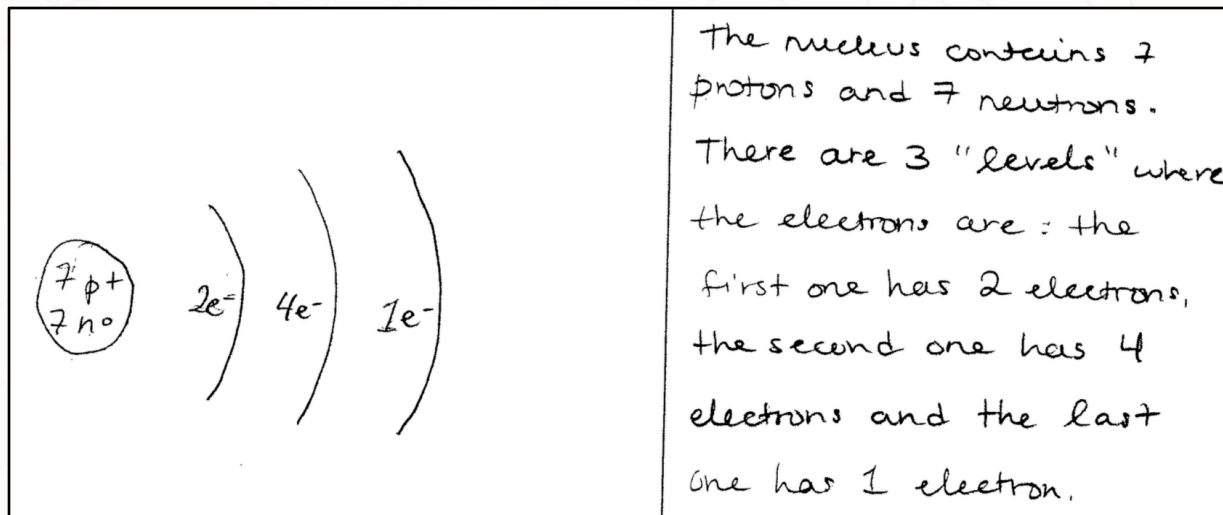 7 p+
7 n°
2e-
4e-
1e-
The nucleus contains 7
protons and 7 neutrons.
There are 3 "levels" where
the electrons are : the
first one has 2 electrons,
the second one has 4
electrons and the last
one has 1 electron.